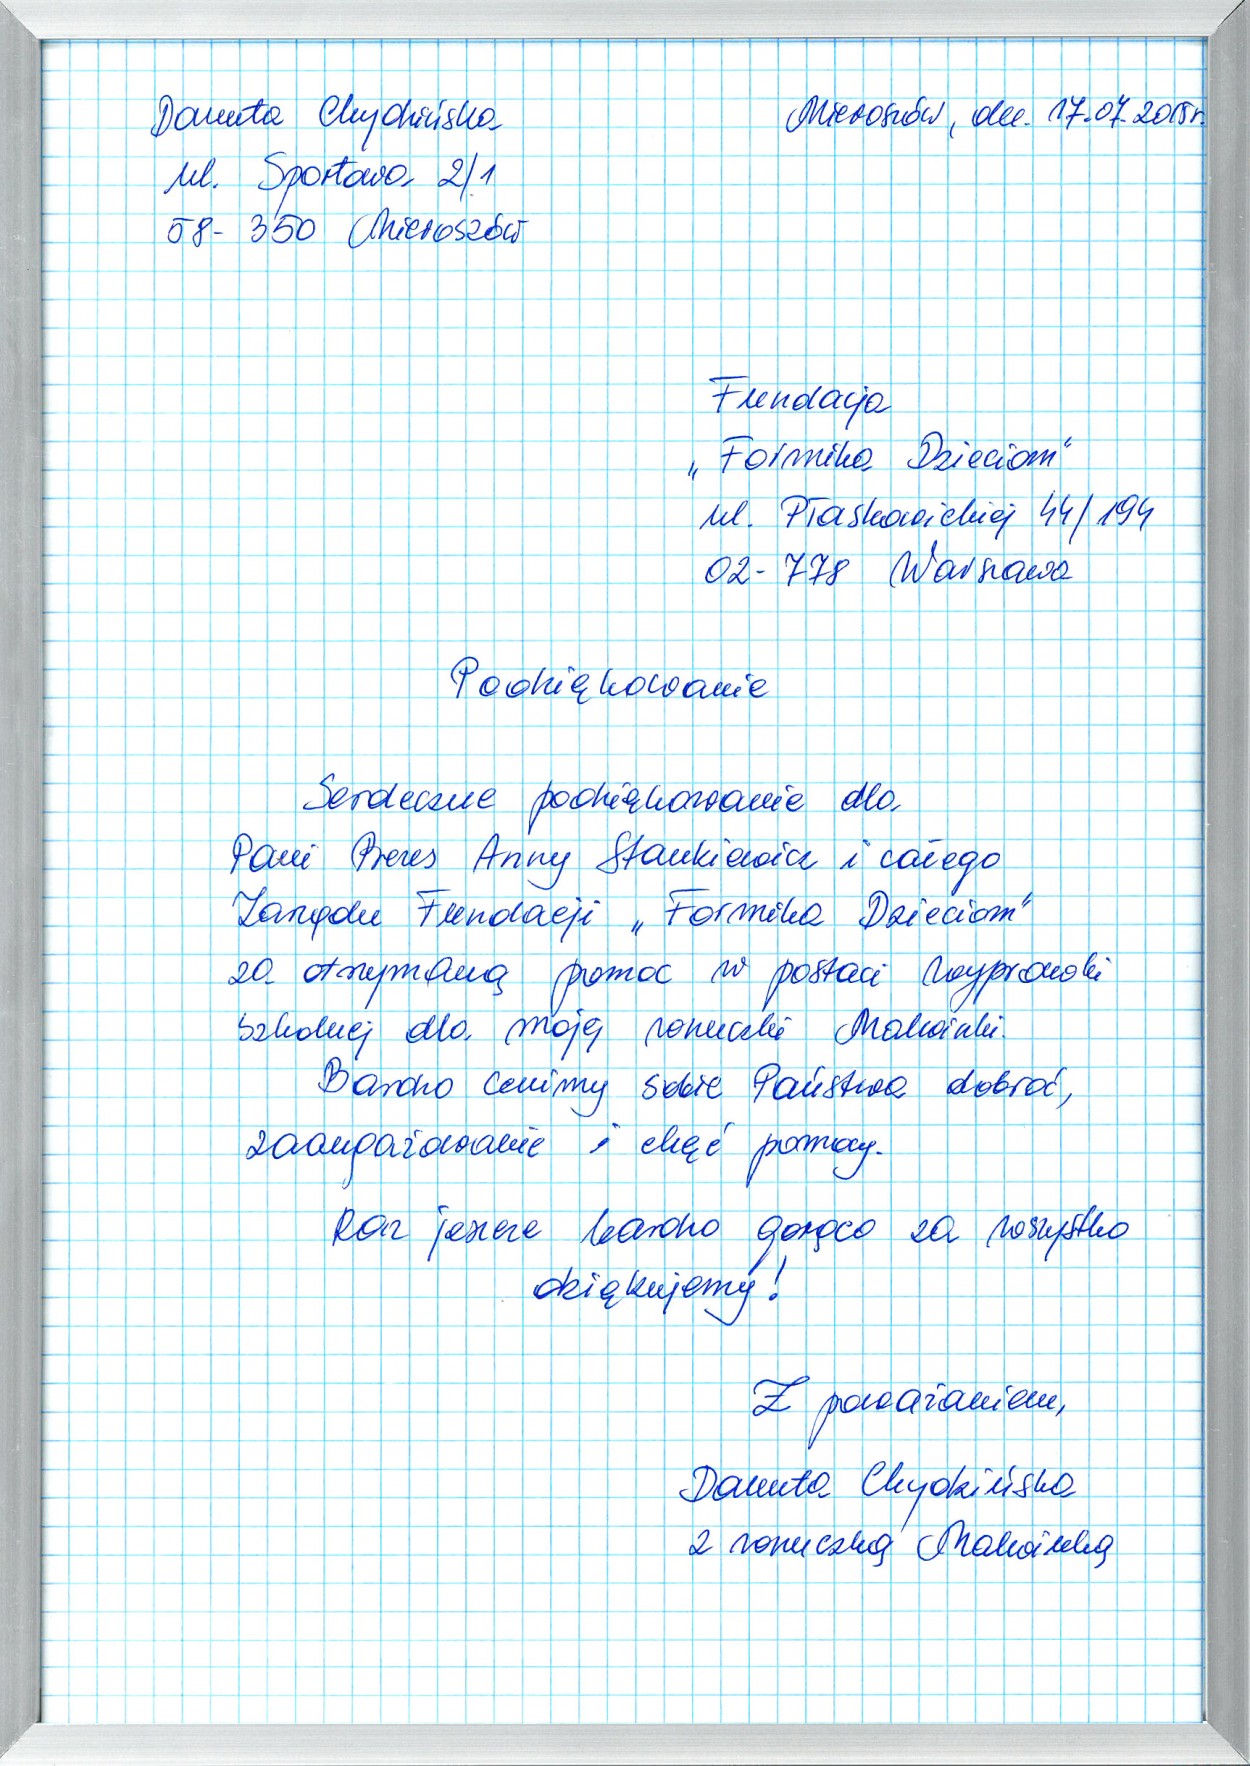 Danuta Chydzińska
Mieroszów, dn. 17.07.2015r.
ul. Sportowa 2/1
58-350 Mieroszów
Fundacja
„Formika Dzieciom"
ul. Płaskowickiej 44/194
02-778 Warszawa
Podziękowanie
Serdeczne podziękowanie dla
Pani Prezes Anny Stankiewicz i całego
Zarządu Fundacji „Formika Dzieciom"
za otrzymaną pomoc w postaci wyprawki
szkolnej dla moję wnuczki Malwinki.
Bardzo cenimy sobie Państwa dobroć,
zaangażowanie i chęć pomocy.
Raz jeszcze bardzo gorąco za wszystko
dziękujemy!
Z poważaniem,
Danuta Chydzińska
z wnuczką Malwinką